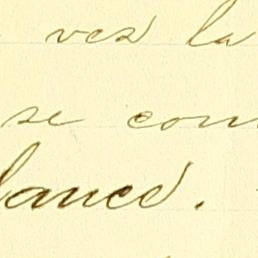 vez la
se con
lance.